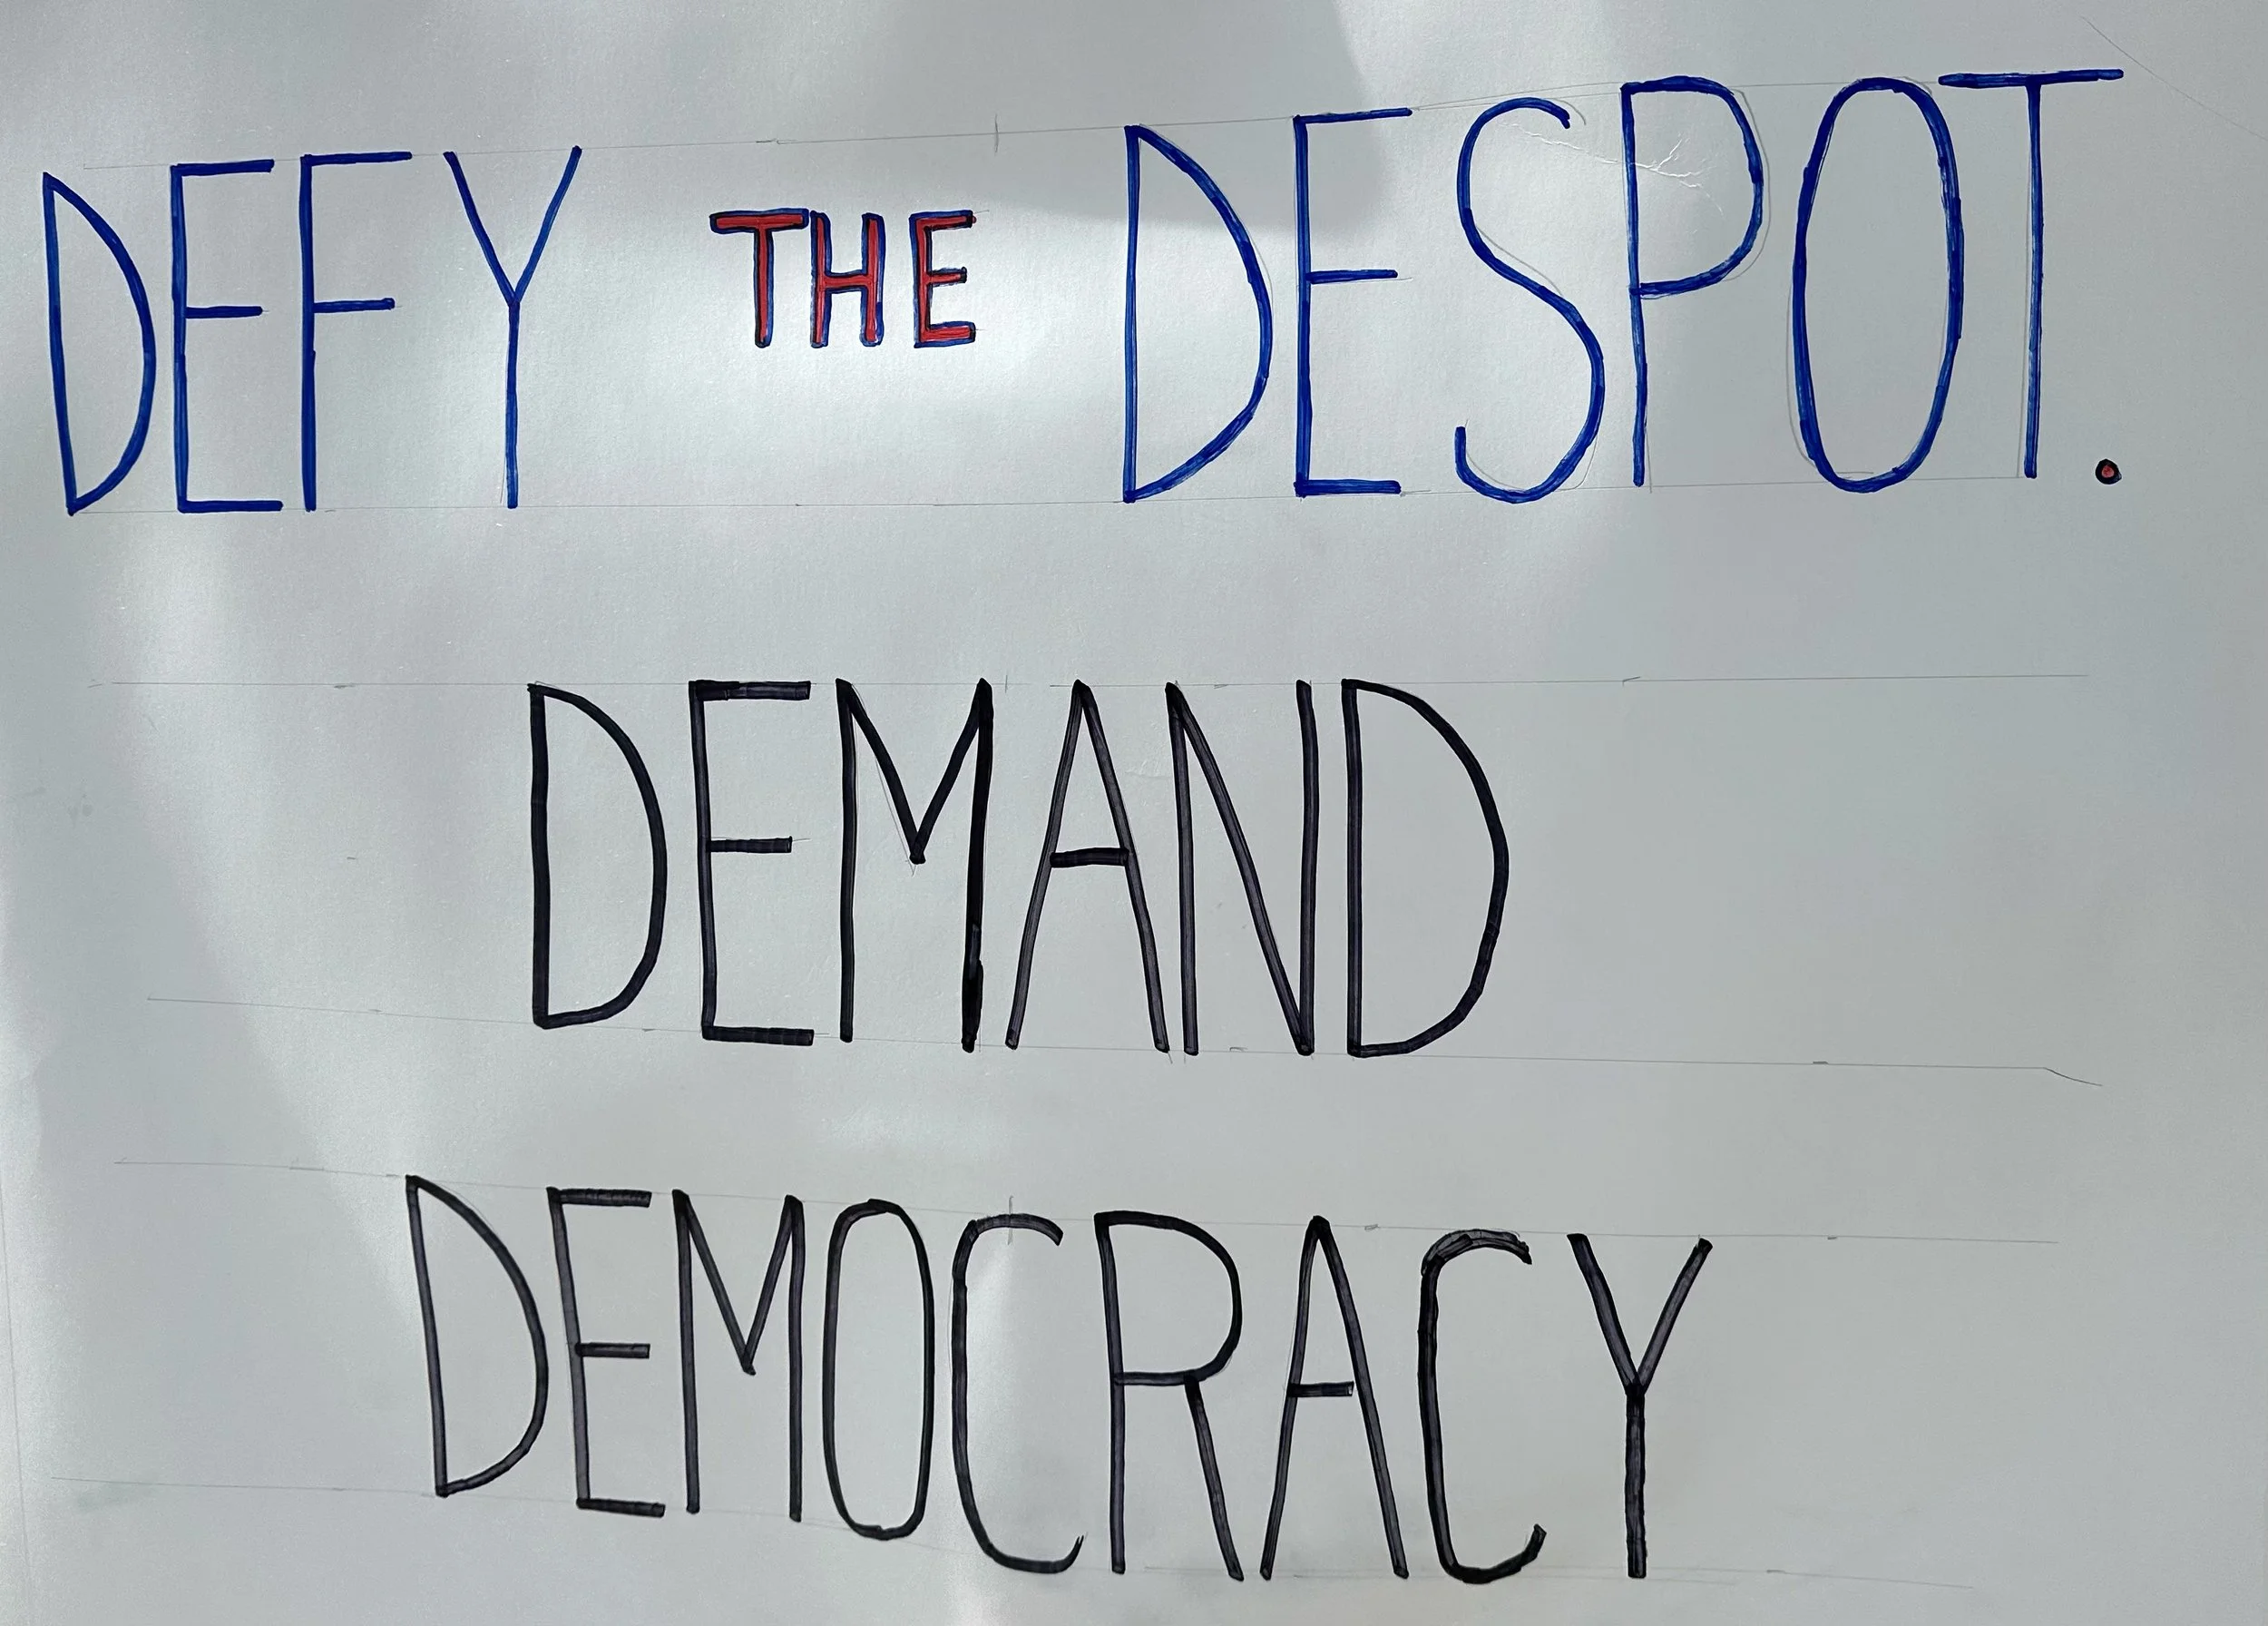 DEFY THE DESPOT.
DEMAND
DEMOCRACY